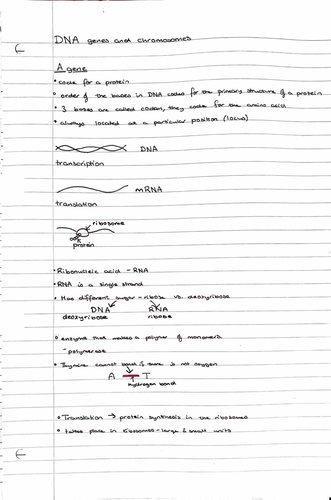 DNA genes and chromosomes
A gene
• code for a protein
• order of the bases in DNA codes for the primary structure of a protein
• 3 bases are called codon, they code for the amino acid
• always located at a particular position (locus)
DNA
transcription
mRNA
translation
ribosome
protein
• Ribonucleic acid - RNA
• RNA is a single strand
• Has different sugar - ribose vs. deoxyribose
DNA RNA
deoxyribose ribose
• enzyme that makes a polymer of monomers
- polymerase
• Thymine cannot bond if there is not oxygen
A T
hydrogen bond
• Translation → protein synthesis in the ribosomes
• takes place in ribosomes - large & small units